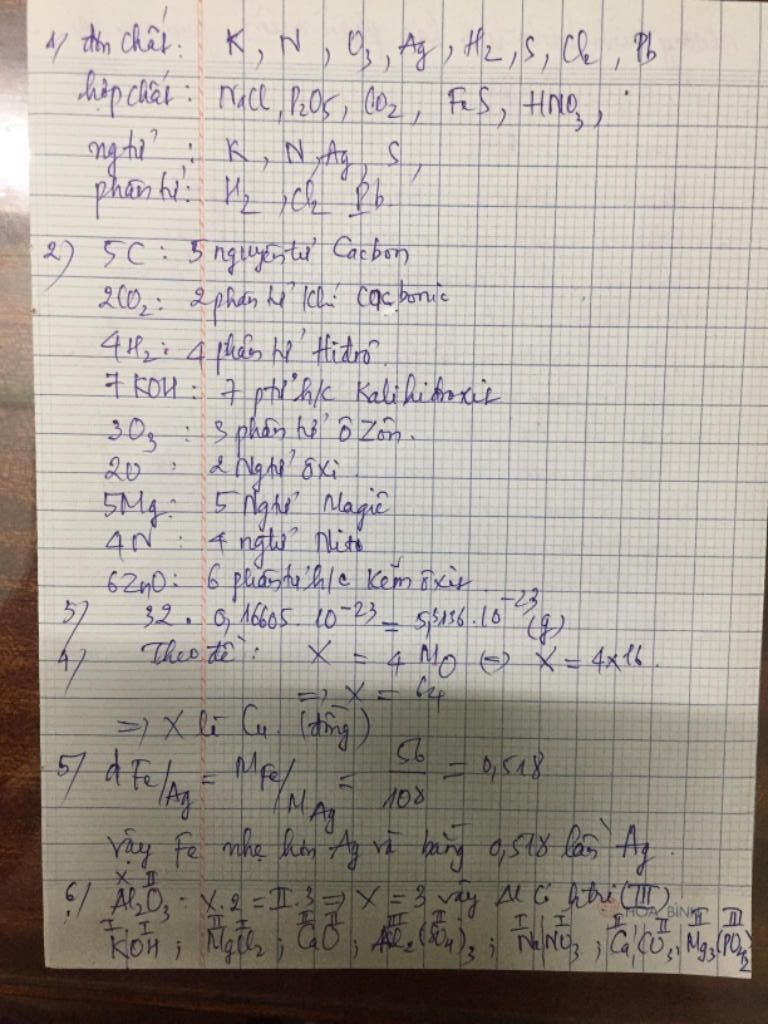 1/ đơn chất: K, N, O3, Ag, H2, S, Cl2, Pb
hợp chất: NaCl, P2O5, CO2, FeS, HNO3,
ngtử: K, N, Ag, S,
phân tử: H2, Cl2 Pb.
2) 5C: 5 nguyên tử Cacbon
2CO2: 2 phân tử khí cacbonic
4H2: 4 phân tử Hiđrô.
7KOH: 7 ptử h/c Kalihiđroxit
3O3: 3 phân tử ôZôn.
2O: 2 Ngtử ôxi
5Mg: 5 Ngtử Magiê
4N: 4 ngtử Nitơ
6ZnO: 6 phân tử h/c kẽm ôxit
5/ 32 . 0,16605 . 10^-23 = 5,3136 . 10^-23 (g)
4/ Theo đề: X = 4 MO <=> X = 4x16.
=> X = 64
=> X là Cu. (đồng)
5/ d Fe/Ag = MFe/MAg = 56/108 = 0,518
vậy Fe nhẹ hơn Ag và bằng 0,518 lần Ag.
X II
6/ Al2O3: X.2 = II.3 => X = 3 vậy Al có htrị (III)
HOA BÌNH
I I II II II III II I I II II II III
KOH; MgCl2; CaO; Al2(SO4)3; NaNO3; CaCO3; Mg3(PO4)2